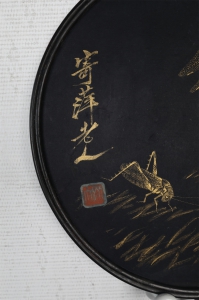 寄萍老人